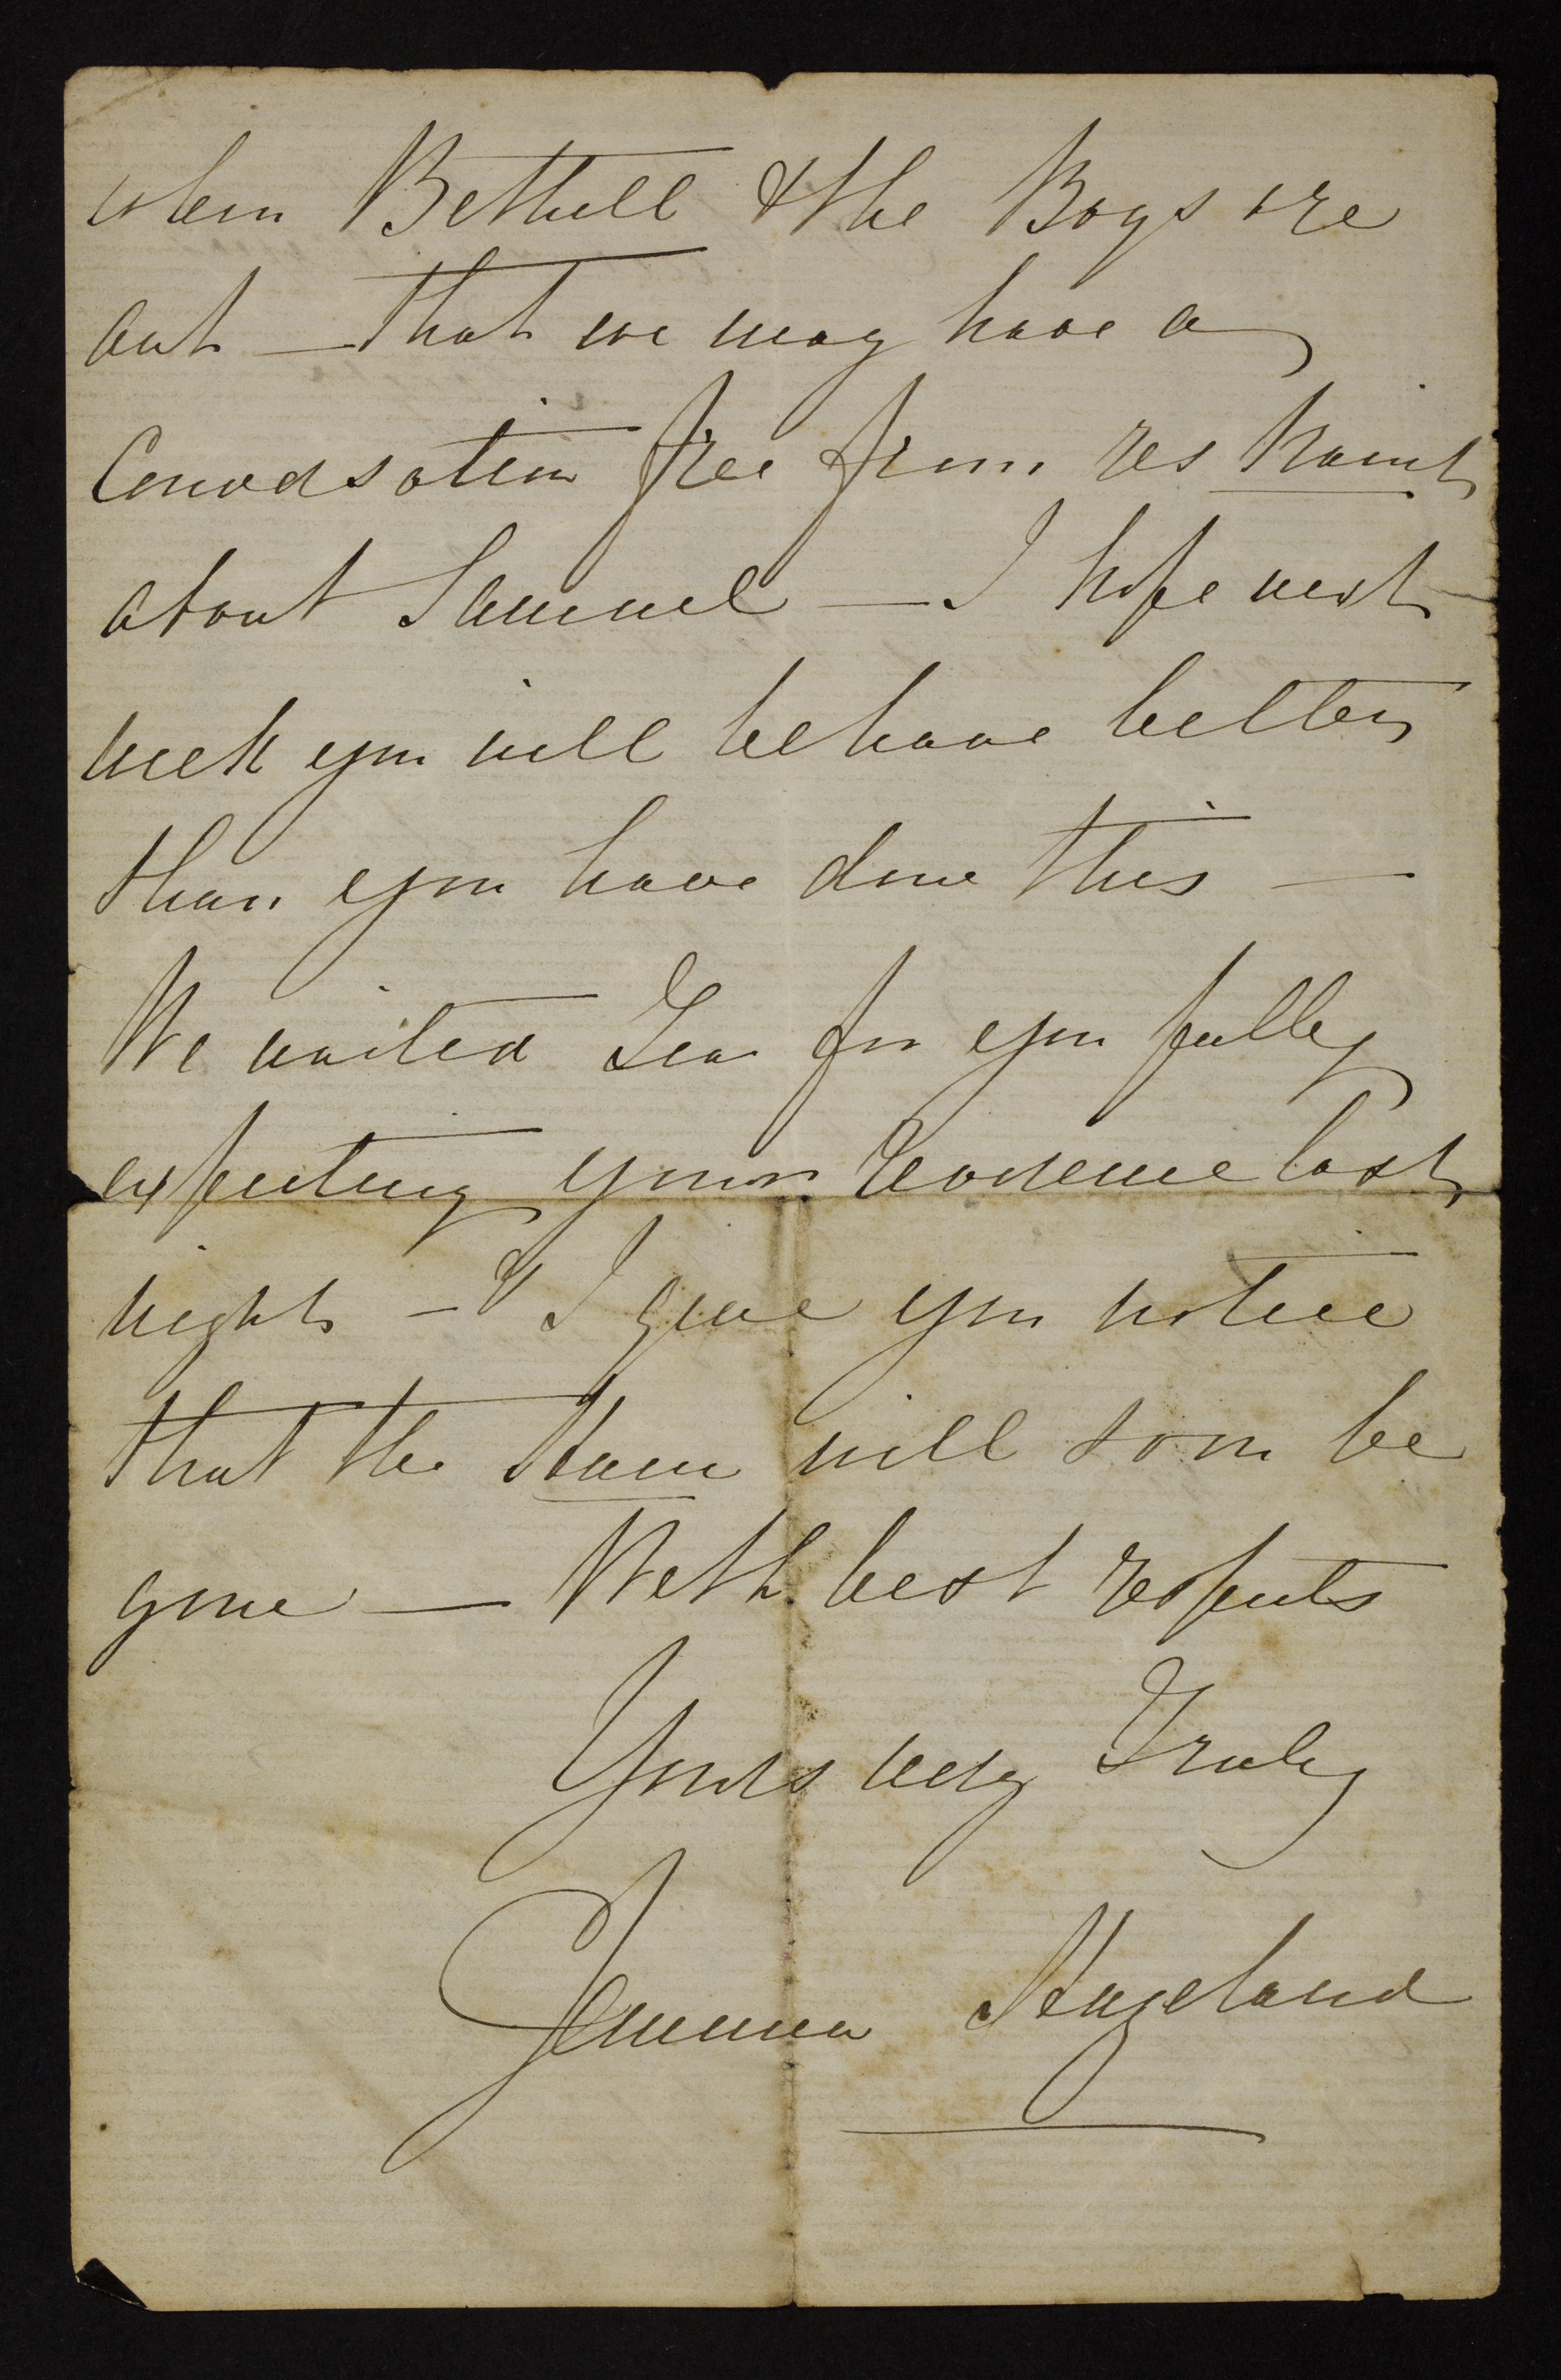 when Bethell & the Boys are
out — that we may have a
Conversation free from restraint
about Samuel — I hope next
week you will behave better
than you have done this —
We waited Tea for you fully
expecting your Reverence last
night — & I give you notice
that the Ham will soon be
gone — With best respects
Yours very Truly
Emma Hazeland